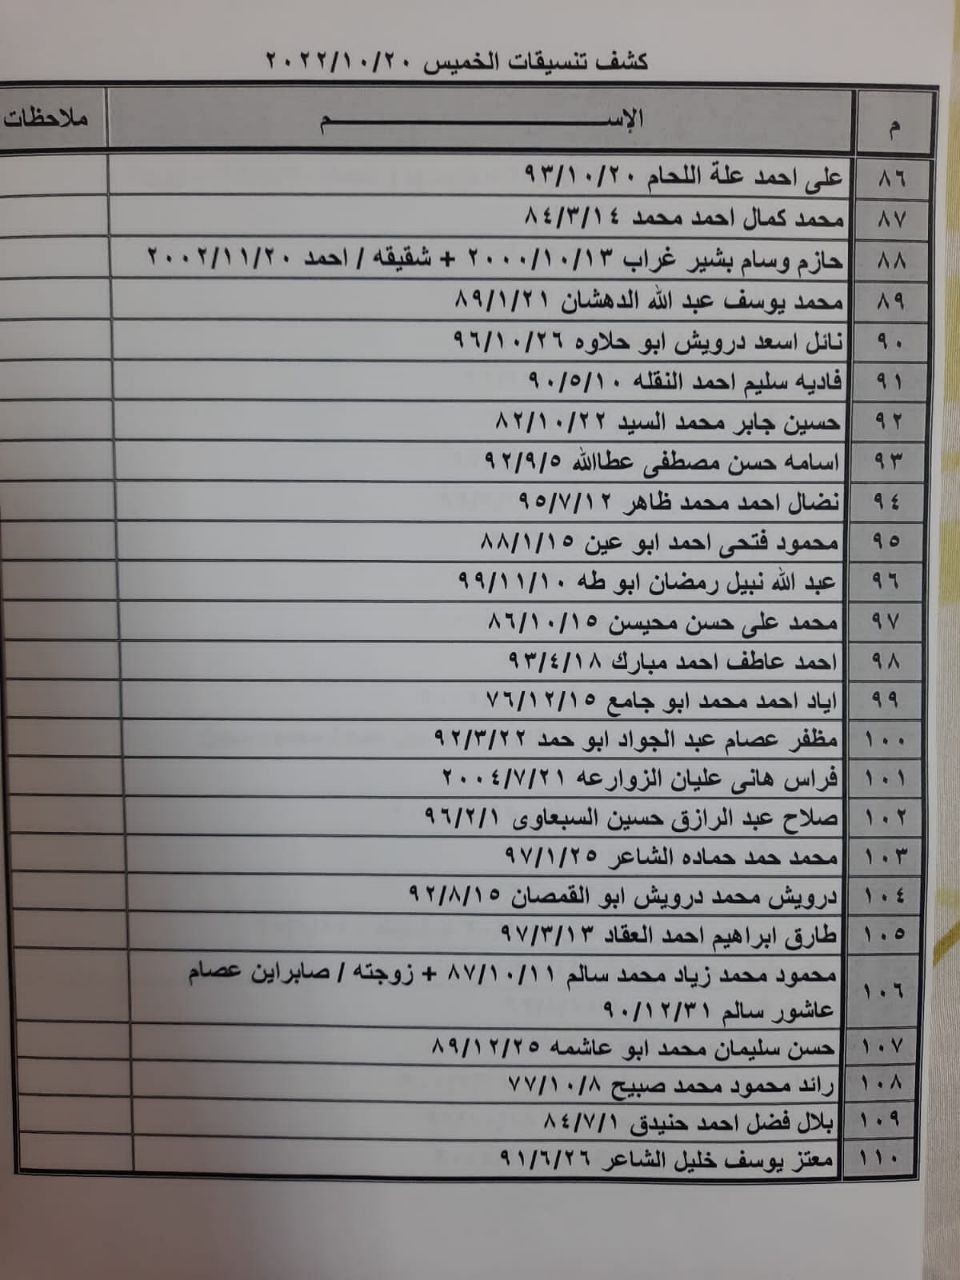 كشف تنسيقات الخميس ٢٠٢٢/١٠/٢٠
م الإســـــــم ملاحظات
٨٦ على احمد علة اللحام ٩٣/١٠/٢٠
٨٧ محمد كمال احمد محمد ٨٤/٣/١٤
٨٨ حازم وسام بشير غراب ٢٠٠٠/١٠/١٣ + شقيقه / احمد ٢٠٠٢/١١/٢٠
٨٩ محمد يوسف عبد الله الدهشان ٨٩/١/٢١
٩٠ نائل اسعد درويش ابو حلاوه ٩٦/١٠/٢٦
٩١ فاديه سليم احمد النقله ٩٠/٥/١٠
٩٢ حسين جابر محمد السيد ٨٢/١٠/٢٢
٩٣ اسامه حسن مصطفى عطاالله ٩٢/٩/٥
٩٤ نضال احمد محمد ظاهر ٩٥/٧/١٢
٩٥ محمود فتحى احمد ابو عين ٨٨/١/١٥
٩٦ عبد الله نبيل رمضان ابو طه ٩٩/١١/١٠
٩٧ محمد على حسن محيسن ٨٦/١٠/١٥
٩٨ احمد عاطف احمد مبارك ٩٣/٤/١٨
٩٩ اياد احمد محمد ابو جامع ٧٦/١٢/١٥
١٠٠ مظفر عصام عبد الجواد ابو حمد ٩٢/٣/٢٢
١٠١ فراس هانى عليان الزوارعه ٢٠٠٤/٧/٢١
١٠٢ صلاح عبد الرازق حسين السبعاوى ٩٦/٢/١
١٠٣ محمد حمد حماده الشاعر ٩٧/١/٢٥
١٠٤ درويش محمد درويش ابو القمصان ٩٢/٨/١٥
١٠٥ طارق ابراهيم احمد العقاد ٩٧/٣/١٣
١٠٦ محمود محمد زياد محمد سالم ٨٧/١٠/١١ + زوجته / صابراين عصام
عاشور سالم ٩٠/١٢/٣١
١٠٧ حسن سليمان محمد ابو عاشمه ٨٩/١٢/٢٥
١٠٨ رائد محمود محمد صبيح ٧٧/١٠/٨
١٠٩ بلال فضل احمد حنيدق ٨٤/٧/١
١١٠ معتز يوسف خليل الشاعر ٩١/٦/٢٦